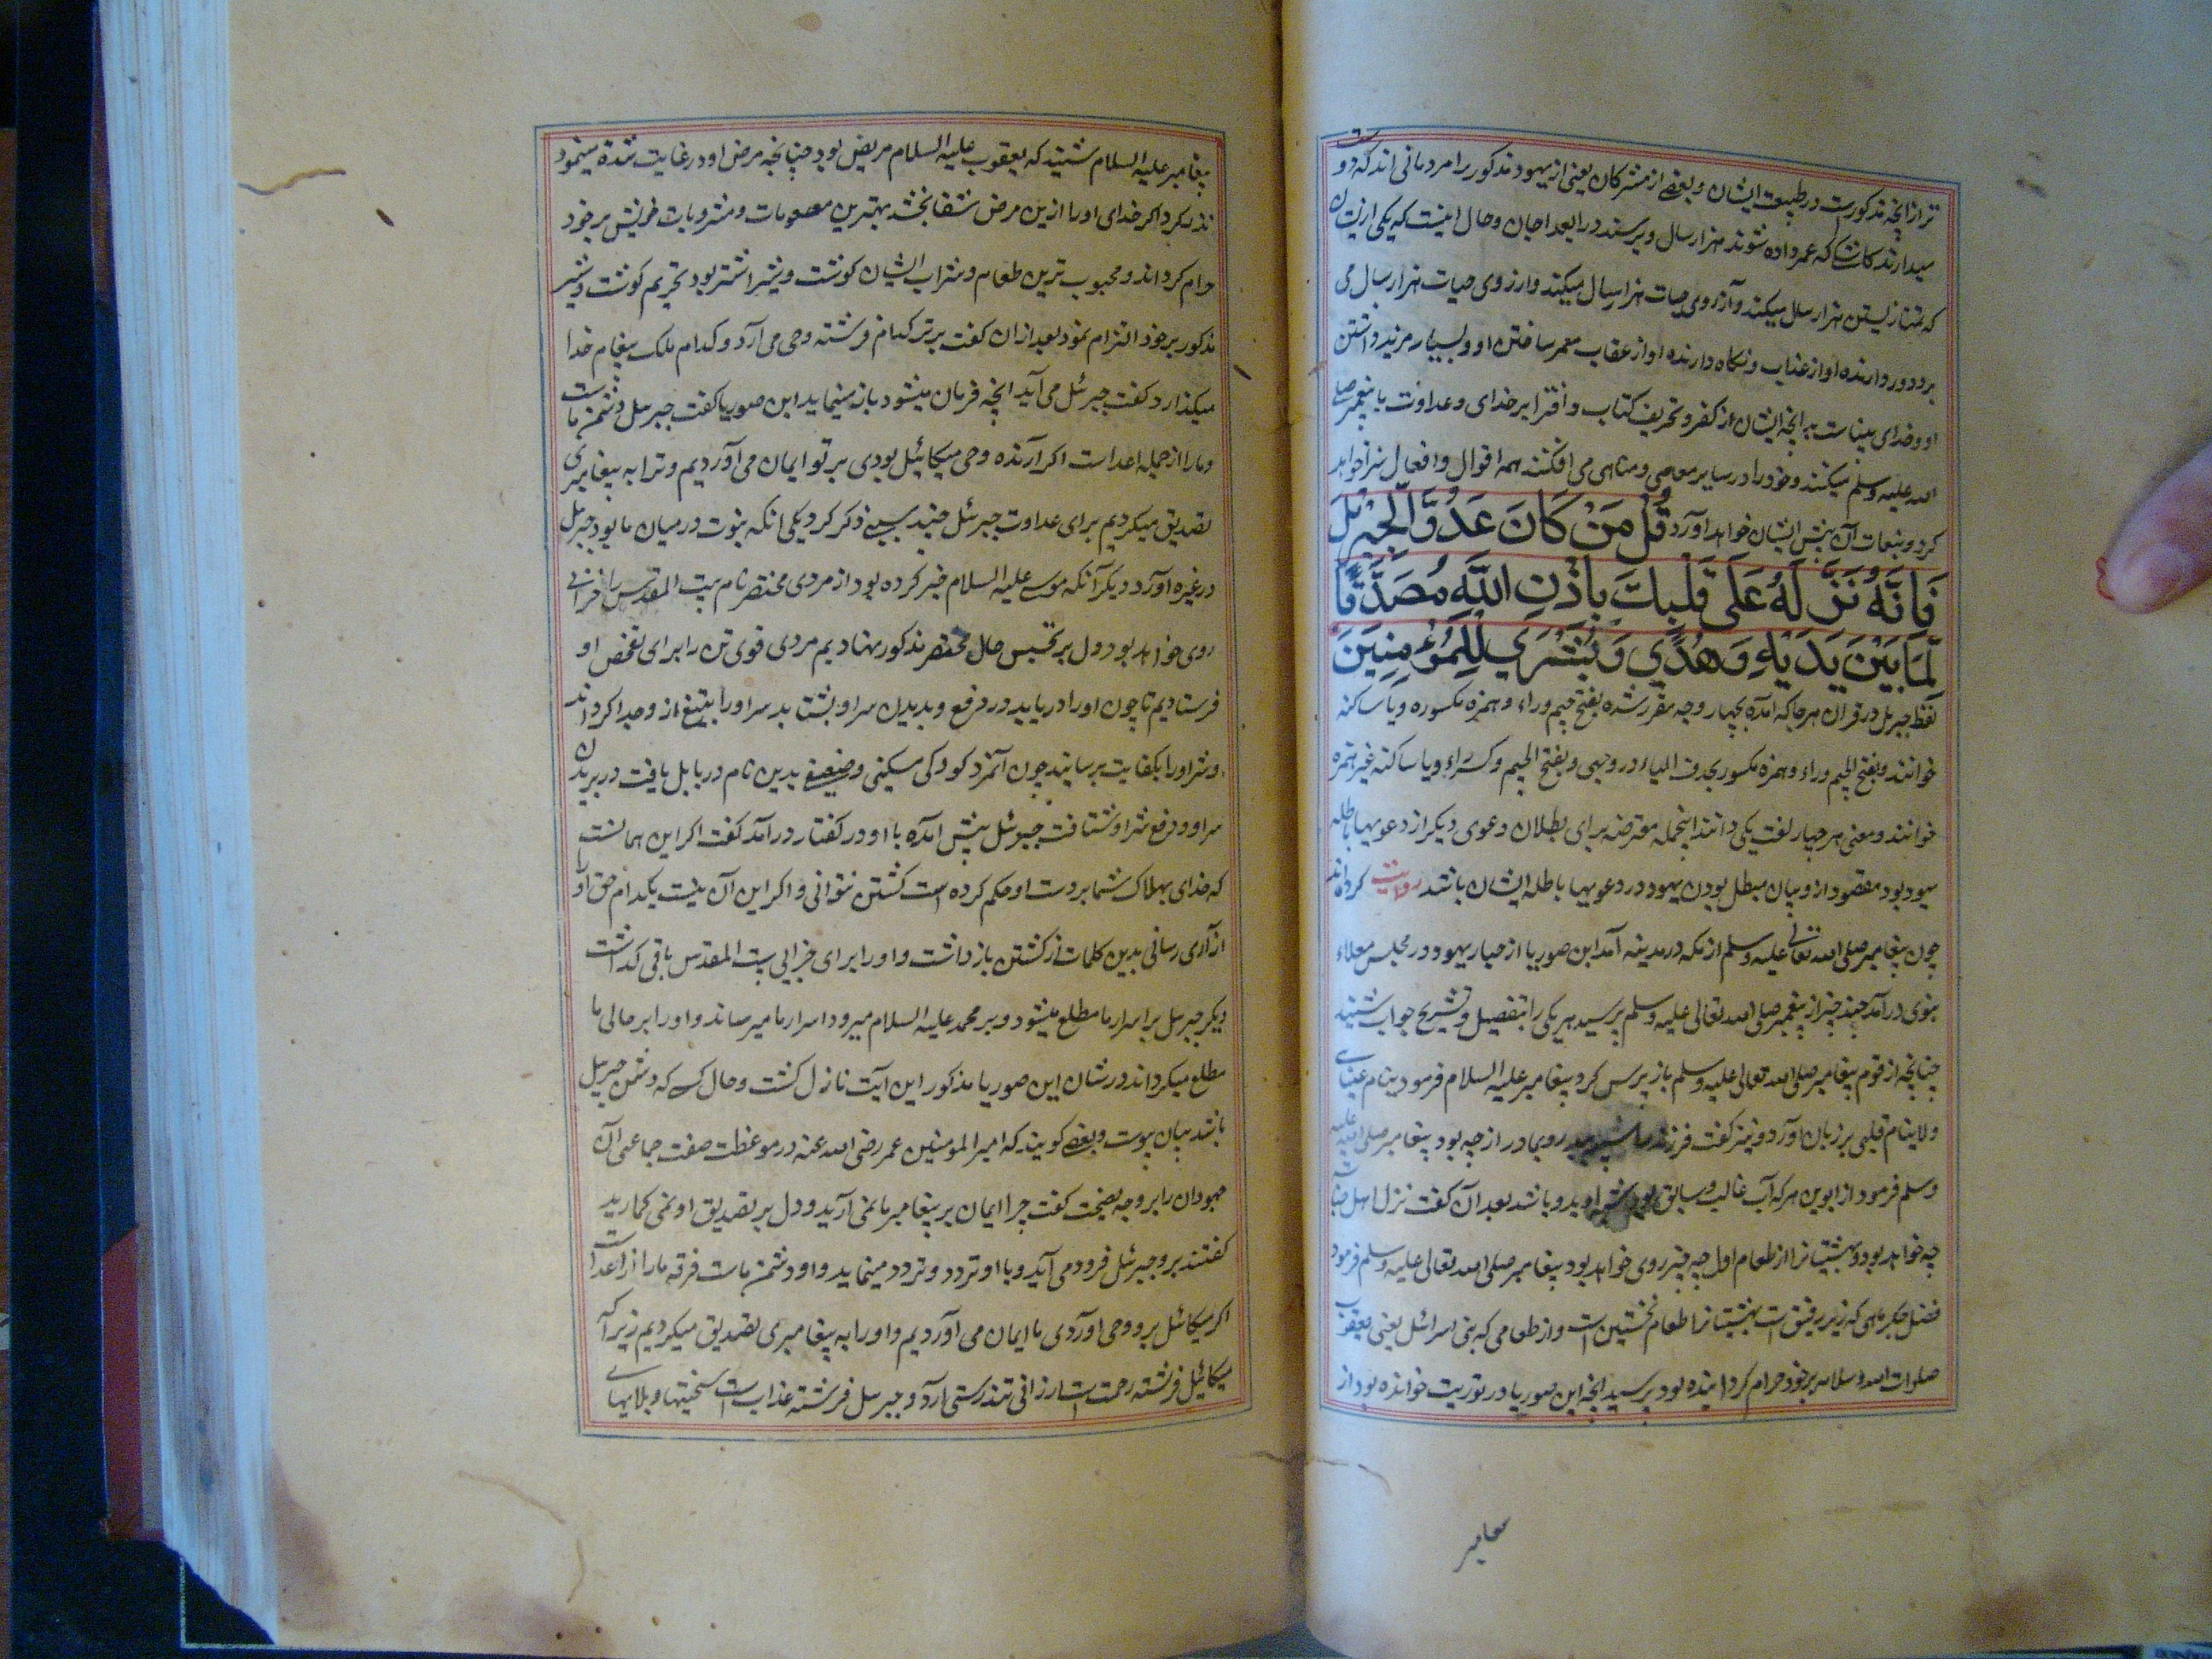 تر از انچه مذکورست در طبیعت ایشان و بعضے از مشرکان یعنی از یهود مذکور را مردمانی اند که دوست
میدارند کاشکا که عمر داده شوند هزار سال و برسند در ابعد احیان و حال اینست که یکی ازینان
که تمنا زیستن هزار سال میکند و آرزوی حیات هزار سال میکند و ارزوی حیات هزار سال می
برد دور دارنده او از عذاب و نکاه دارنده او از عقاب معمر ساختن او و بسیار مزید داشتن
او و خدای بیناست به انچه ایشان از کفر و تحریف کتاب و افترا بر خدای و عداوت با پیغمبر صلی
الله علیه وسلم میکنند و خود را در سایر معاصی و مناهی می افکنند همه اقوال و افعال سزا خواهد
کرد و تبعات آن پیش ایشان خواهد اورد قُلْ مَنْ كَانَ عَدُوًّا لِّجِبْرِيلَ
فَاِنَّهُ نَزَّلَهُ عَلَى قَلْبِكَ بِاِذْنِ اللَّهِ مُصَدِّقًا
لِّمَا بَيْنَ يَدَيْهِ وَهُدًى وَبُشْرَى لِلْمُؤْمِنِينَ
لفظ جبریل در قران هر جا که آمده بچهار وجه مقرر شده بفتح جیم وراء و همزه مکسوره ویا ساکنه
خوانند و بفتح الجیم وراء و همزه مکسور بحذف الیاء در وجهی و بفتح الجیم و کسر راء ویا ساکنه غیر همزه
خوانند و معنی هر چهار لغت یکی دانند اینجمله معترضه برای بطلان دعوی دیکر از دعویها باطله
یهود بود مقصود ازو بیان مبطل بودن یهود در دعویها باطله ایشان باشد روایت کرده اند
چون پیغامبر صلی الله تعالی علیه وسلم از مکه در مدینه آمد ابن صوریا از احبار یهود در مجلس معلاء
نبوی درآمد چند چیز از پیغمبر صلی الله تعالی علیه وسلم پرسید هر یکی را بتفصیل و تشریح جواب شنید
چنانچه از قوم پیغامبر صلی الله تعالی علیه وسلم باز پرس کرد پیغامبر علیه السلام فرمود ینام عینای
ولا ینام قلبی بر زبان اورد و نیز کفت فرزند روی مادر از چه بود پیغامبر صلی الله علیه
وسلم فرمود از ابوین هر که آب غالب و سابق بود شبه او بدو باشد بعد آن کفت نزل اهل جنات
چه خواهد بود و بهشتیانرا از طعام اول چه چیز روی خواهد بود پیغامبر صلی الله تعالی علیه وسلم فرمود
فضل جکر ماهی که زیر زمین است بهشتیانرا طعام نخستین است و از طعامی که بنی اسرائل یعنی یعقوب
صلوات الله وسلامه بر خود حرام کردانیده بود پرسید انچه ابن صوریا در توریت خوانده بود از
پیغامبر
پیغامبر علیه السلام شنید که یعقوب علیه السلام مریض بود چنانچه مرض او در غایت شدة مینمود
نذر کرد اکر خدای او را ازین مرض شفا بخشد بهترین مطعومات و مشروبات خویش بر خود
حرام کرداند و محبوب ترین طعام و شراب ایشان کوشت و شیر اشتر بود تحریم کوشت و شیر
مذکور بر خود التزام نمود بعد از ان کفت بر تو کدام فرشته وحی می آرد و کدام ملک پیغام خدا
میکذارد کفت جبرئل می آید انچه فرمان میشود باز مینماید ابن صوریا کفت جبرئل دشمن ماست
و ما را از جمله اعداست اکر آرنده وحی میکائیل بودی بر تو ایمان می آوردیم و ترا به پیغامبری
تصدیق میکردیم برای عداوت جبرئل چند سببے ذکر کرد یکی انکه نبوت در میان ما بود جبرئل
در غیره اورد دیکر آنکه موسے علیه السلام خبر کرده بود از مردی مختصر نام بیت المقدس را خرابے
روی خواهد بود دل بر تجسس حال مختصر مذکور نهادیم مردی قوی تن را برای تفحص او
فرستادیم تا چون او را دریابد در رفع و بدیدن سر او بشتابد سر او را بتیغ از و جدا کرداند
و شر او را بکفایت برساند چون آنمرد کودکی مسکینی و ضعیفے بدین نام در بابل یافت در بریدن
سر او و دفع شر او شتافت جبرئل پیش امده با او در کفتار درآمد کفت اکر این همانست
که خدای بهلاک شما بر دست او حکم کرده است کشتن نتوانی و اکر این آن نیست بکدام حق او را
از آری رسانی بدین کلمات از کشتن باز داشت و او را برای خرابی بیت المقدس باقی کذاشت
دیکر جبرئل بر اسرار ما مطلع میشود و بر محمد علیه السلام میرود اسرار ما میرساند و او را بر حالی ما
مطلع میکرداند در شان ابن صوریا مذکور این آیت نازل کشت و حال کسے که دشمن جبریل
باشد بیان پیوست و بعضے کویند که امیر المومنین عمر رضی الله عنه در موعظت صفت جماعتی آن
جهودان را بر وجه نصیحت کفت چرا ایمان بر پیغامبر ما نمی آرید و دل بر تصدیق او نمی کمارید
کفتند برو جبرئل فرود می آید و با او تردد و تردد مینماید و او دشمن ماست فرقه ما را از اعداست
اکر میکائل برو وحی آوردی ما ایمان می آوردیم و او را به پیغامبری تصدیق میکردیم زیرا که
میکائیل فرشته رحمت است ارزانی تندرستی آرد و جبرئل فرشته عذاب است سختیها و بلایهای